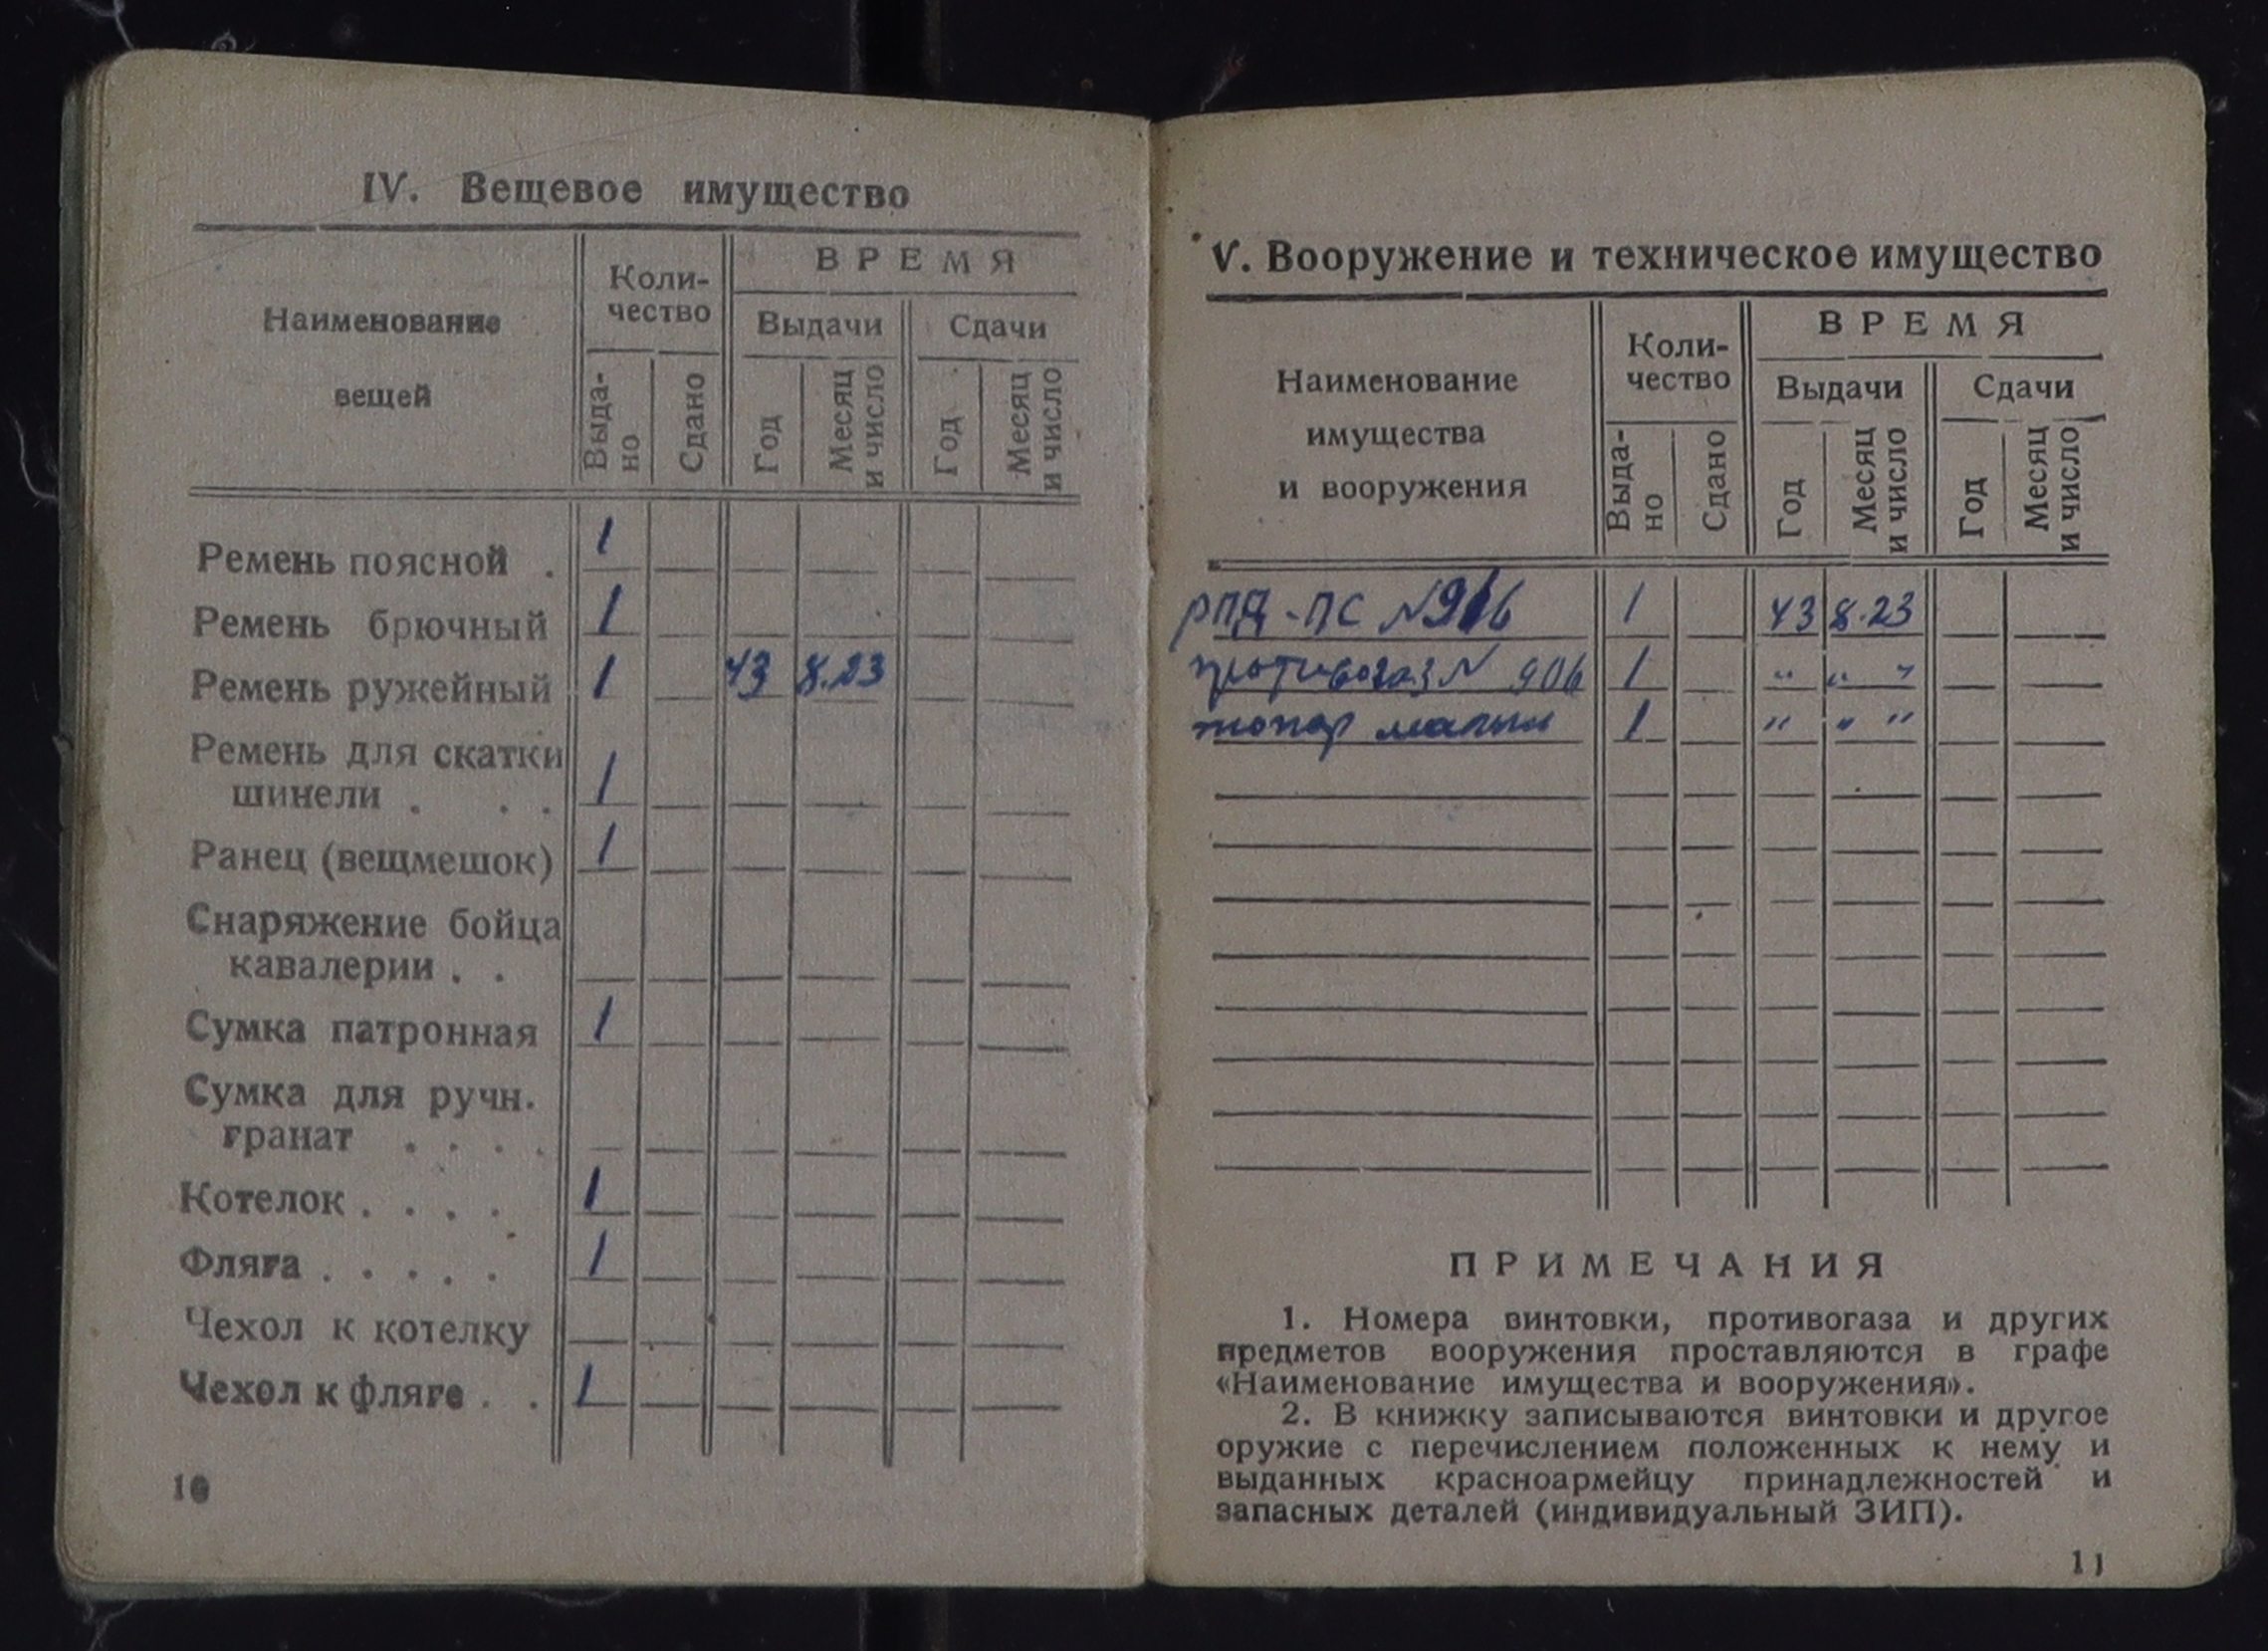 IV. Вещевое имущество
Наименование
вещей
Коли-
чество
ВРЕМЯ
Выдачи
Сдачи
Выда-
но
Сдано
Год
Месяц
и число
Год
Месяц
и число
Ремень поясной . 1
Ремень брючный 1
Ремень ружейный 1 43 8.23
Ремень для скатки
шинели . . . 1
Ранец (вещмешок) 1
Снаряжение бойца
кавалерии . .
Сумка патронная 1
Сумка для ручн.
гранат . . . .
Котелок . . . . 1
Фляга . . . . . 1
Чехол к котелку
Чехол к фляге . . 1
10
V. Вооружение и техническое имущество
Наименование
имущества
и вооружения
Коли-
чество
ВРЕМЯ
Выдачи
Сдачи
Выда-
но
Сдано
Год
Месяц
и число
Год
Месяц
и число
РПД-ПС N 916 1 43 8.23
противогаз N 906 1 " " "
топор малый 1 " " "
ПРИМЕЧАНИЯ
1. Номера винтовки, противогаза и других
предметов вооружения проставляются в графе
«Наименование имущества и вооружения».
2. В книжку записываются винтовки и другое
оружие с перечислением положенных к нему и
выданных красноармейцу принадлежностей и
запасных деталей (индивидуальный ЗИП).
11